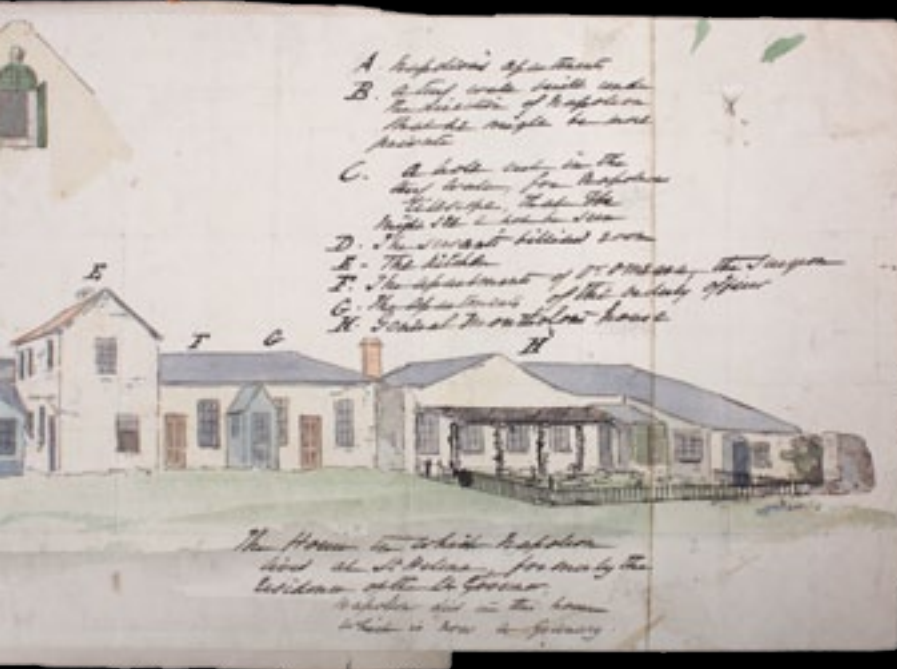 A. Napoleon's apartments
B. a turf wall built under
the direction of Napoleon
that he might be more
private
C. a hole cut in the
turf wall, for Napoleon
telescope, that he
might see & not be seen
D. The servants billiard room
E. The kitchen
F. The apartments of Dr Omeara, the Surgeon
G. The apartments of the orderly officer
H. General Montholons house
E
F G
H
The House in which Napoleon
lived at St Helena, formerly the
residence of the Lt Governor
Napoleon died in the house
which is now a Granary.